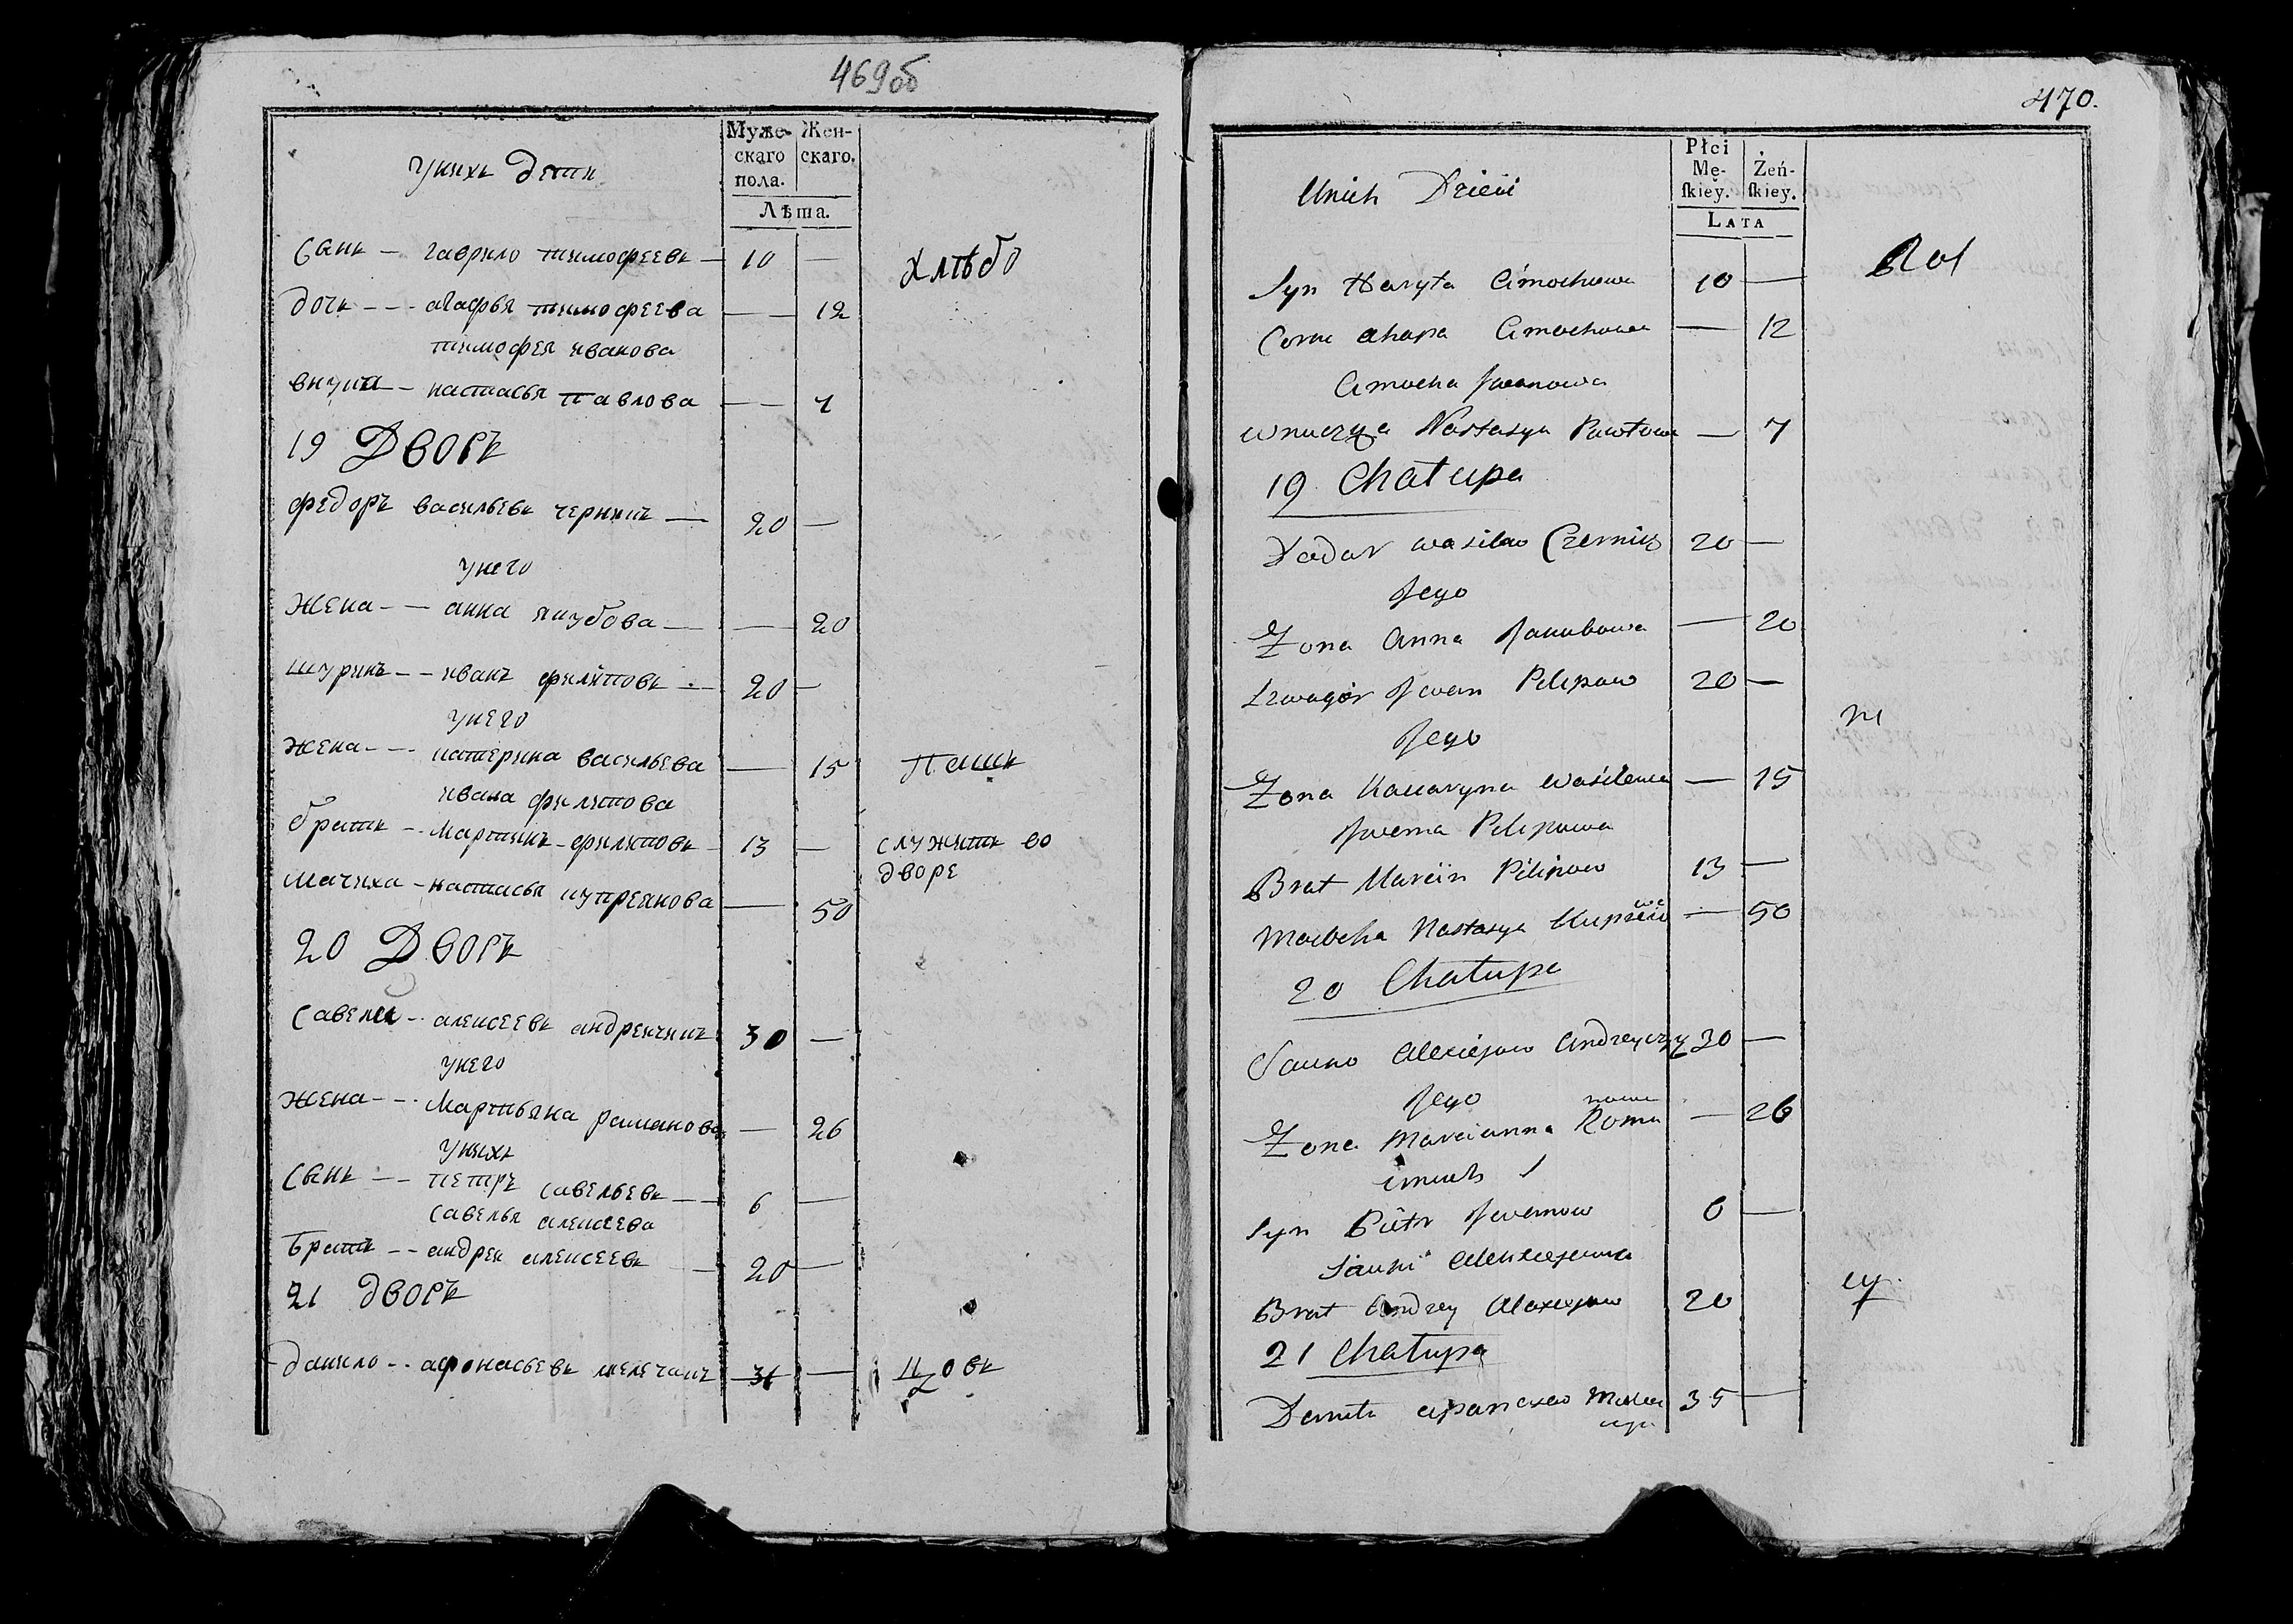 469об
Муже-
скаго
пола.
Жен-
скаго.
Лѣта.
унихъ дети
Сынъ — гаврило тимофеевъ — 10 —
дочь --- агафья тимофеева — 12
тимофея иванова
внука — настасья павлова — 7
19 Дворъ
федоръ васильевъ черникъ — 20 —
унего
Жена -- анна якубова — 20
шуринъ -- иванъ филиповъ — 20 —
унего
жена --- катерина васильева — 15
ивана филипова
братъ -- мартинъ филиповъ — 13 —
мачиха — настасья купреянова — 50
20 Дворъ
Савелей -- алексеевъ андрейчикъ 30 —
унего
жена --- мартьяна раманова — 26
унихъ
Сынъ -- петръ савельевъ — 6 —
савелья алексеева
братъ -- андрей алексеевъ — 20 —
21 дворъ
данило -- афонасьевъ
хлѣбо
пашъ
служитъ во
дворе
470.
Płci
Mę-
ſkiey.
Żeń-
ſkiey.
Lata
Unich Dzieci
Syn Haryła Cimochowa 10 —
Corка ahapa Cimochowa — 12
Cimocha Jwanowa
wnuczka Nastasya Pawłowa — 7
19 Chałupa
Chwedor wasilew Czernik 20 —
Jego
Zona Anna Jakubowa — 20
Szwagier Jwan Pilipow 20 —
Jego
Zona Kaciaryna Wasilewa — 15
Jwana Pilipowa
Brat Marcin Pilipow 13 —
Macocha Nastasya — 50
20 Chałupa
Sauko Alexiejow Andreyczyk 30 —
Jego
Zona Marcianna Romanowa — 26
Syn Piotr 6 —
Sauki Alexiejewa
Brat Andrey Alexiejow 20
21 Chałupa
35 —